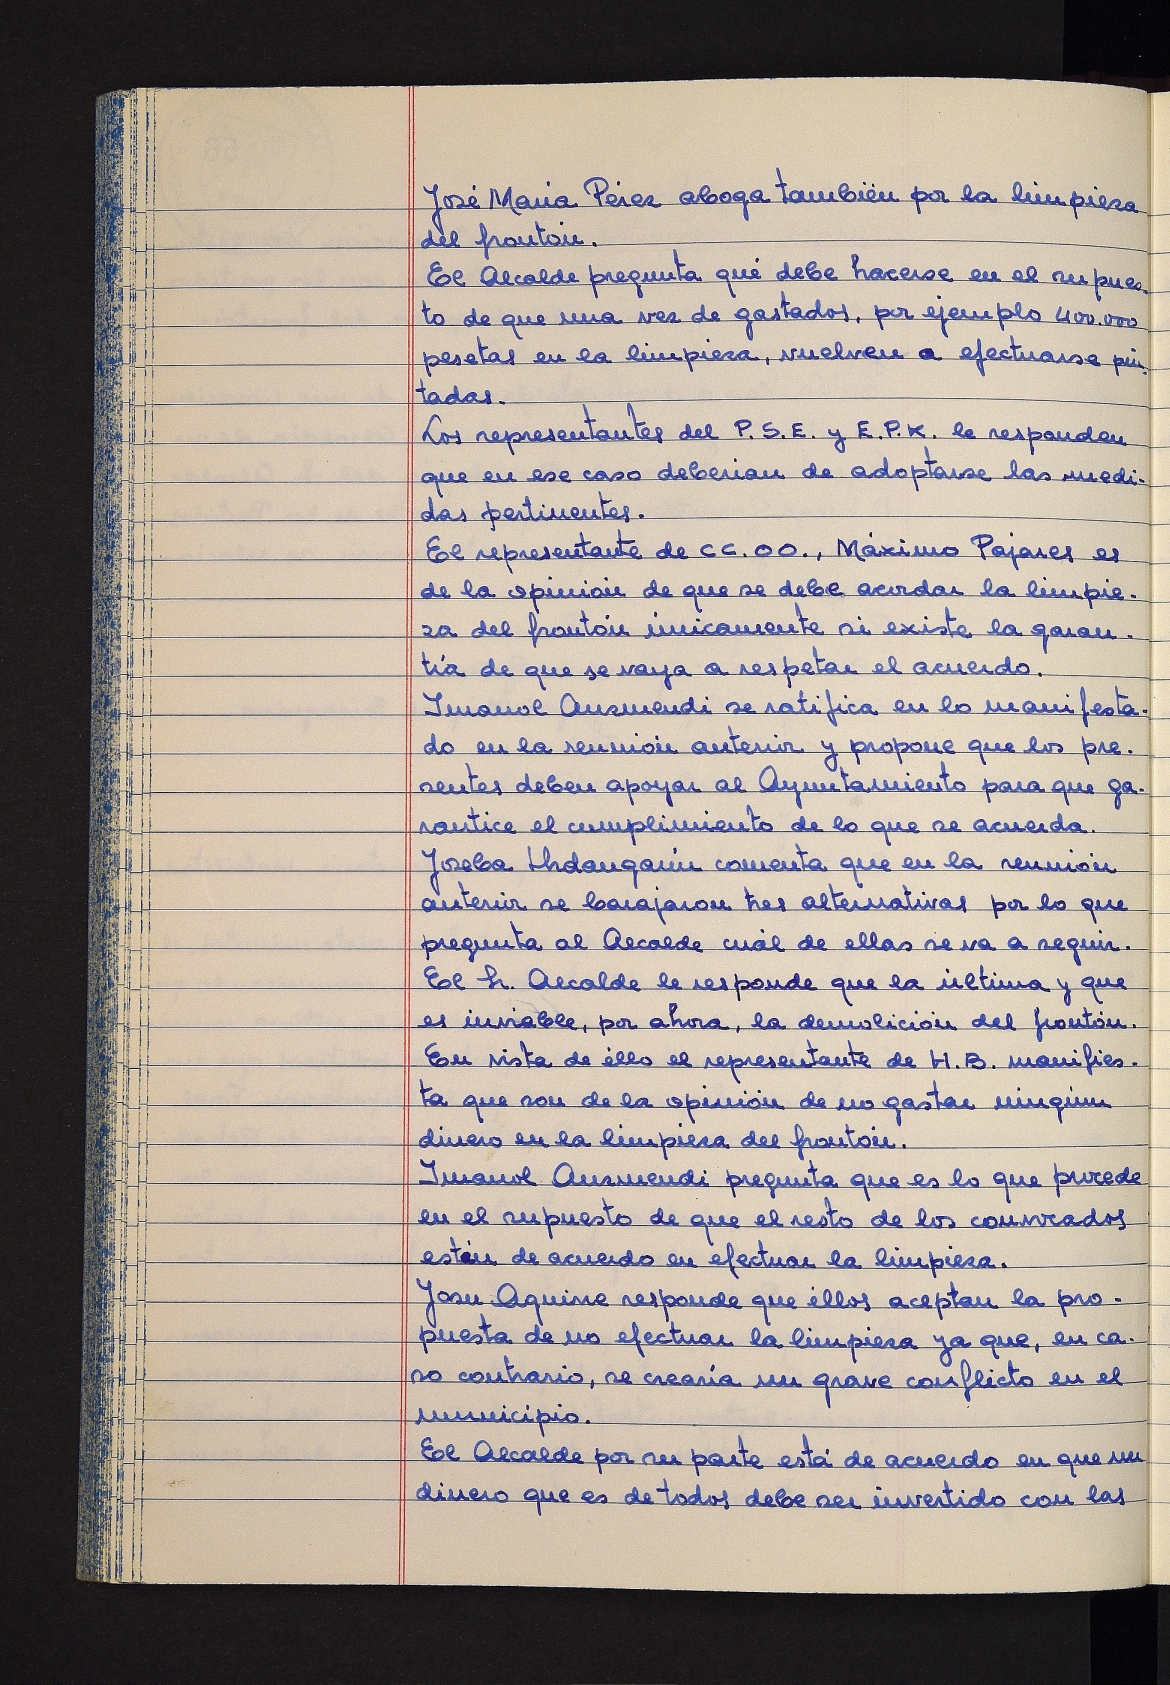 José Maria Pérez aboga también por la limpieza
del frontón.
El Alcalde pregunta qué debe hacerse en el supues-
to de que una vez de gastados, por ejemplo 400.000
pesetas en la limpieza, vuelven a efectuarse pin-
tadas.
Los representantes del P.S.E. y E.P.K. le responden
que en ese caso deberian de adoptarse las medi-
das pertinentes.
El representante de CC.OO., Máximo Pajares es
de la opinión de que se debe acordar la limpie-
za del frontón únicamente si existe la garan-
tía de que se vaya a respetar el acuerdo.
Imanol Auzmendi se ratifica en lo manifesta-
do en la reunión anterior y propone que los pre-
sentes deben apoyar al Ayuntamiento para que ga-
rantice el cumplimiento de lo que se acuerda.
Joseba Urdangarín comenta que en la reunión
anterior se barajaron tres alternativas por lo que
pregunta al Alcalde cuál de ellas se va a seguir.
El Sr. Alcalde le responde que la última y que
es inviable, por ahora, la demolición del frontón.
En vista de éllo el representante de H.B. manifies-
ta que son de la opinión de no gastar ningún
dinero en la limpieza del frontón.
Imanol Auzmendi pregunta que es lo que procede
en el supuesto de que el resto de los convocados
estén de acuerdo en efectuar la limpieza.
Josu Aguirre responde que éllos aceptan la pro-
puesta de no efectuar la limpieza ya que, en ca-
so contrario, se crearía un grave conflicto en el
municipio.
El Alcalde por su parte está de acuerdo en que un
dinero que es de todos debe ser invertido con las